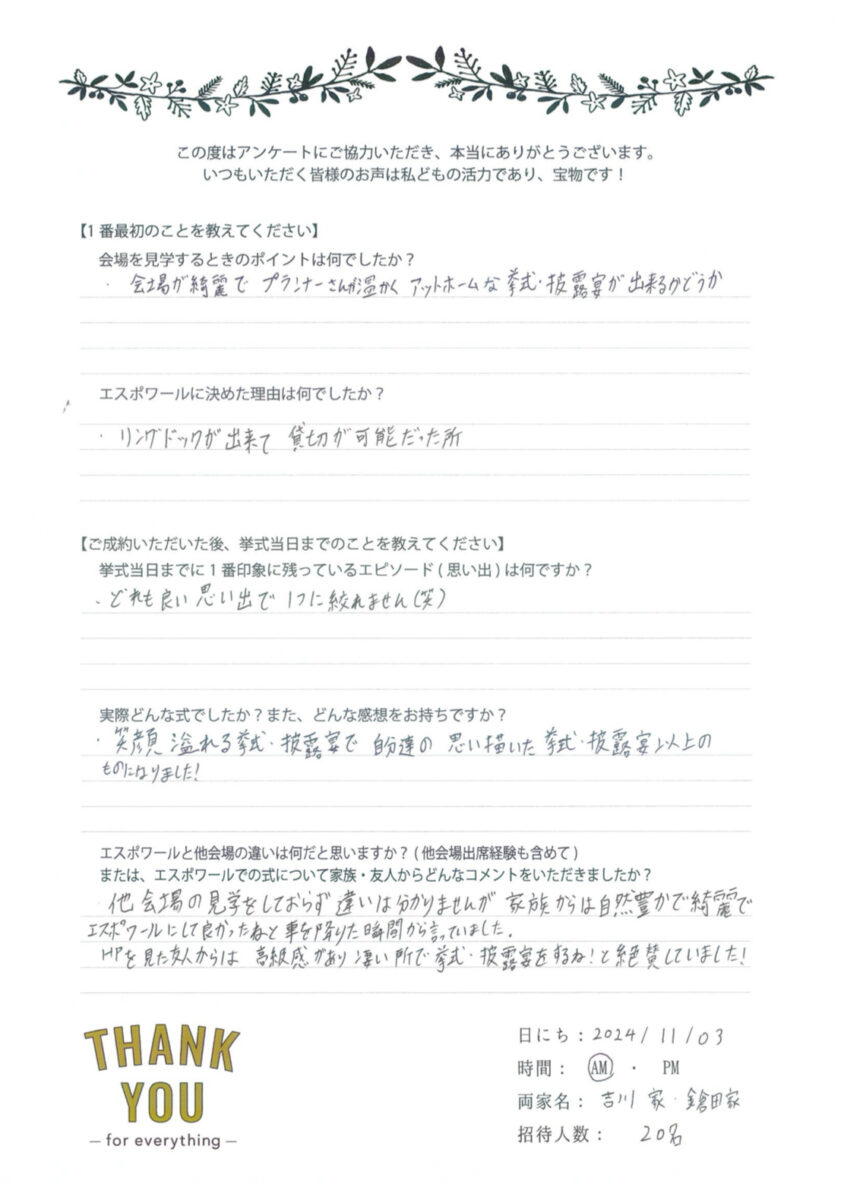 この度はアンケートにご協力いただき、本当にありがとうございます。
いつもいただく皆様のお声は私どもの活力であり、宝物です！
【1番最初のことを教えてください】
会場を見学するときのポイントは何でしたか？
・ 会場が綺麗で プランナーさんが温かく アットホームな挙式・披露宴が出来るかどうか
エスポワールに決めた理由は何でしたか？
・ リングドックが出来て 貸切が可能だった所
【ご成約いただいた後、挙式当日までのことを教えてください】
挙式当日までに1番印象に残っているエピソード(思い出)は何ですか？
・どれも良い思い出で 1つに絞れません(笑)
実際どんな式でしたか？また、どんな感想をお持ちですか？
・ 笑顔溢れる挙式・披露宴で 自分達の 思い描いた 挙式・披露宴以上の
ものになりました！
エスポワールと他会場の違いは何だと思いますか？(他会場出席経験も含めて)
または、エスポワールでの式について家族・友人からどんなコメントをいただきましたか？
・他会場の見学をしておらず違いは分かりませんが 家族からは自然豊かで綺麗で
エスポワールにして良かったねと車を降りた瞬間から言っていました。
HPを見た友人からは 高級感があり凄い所で挙式・披露宴をするね！と絶賛していました！
THANK
YOU
– for everything –
日にち：2024/11/03
時間： AM ・ PM
両家名：吉川 家・鎌田家
招待人数： 20名